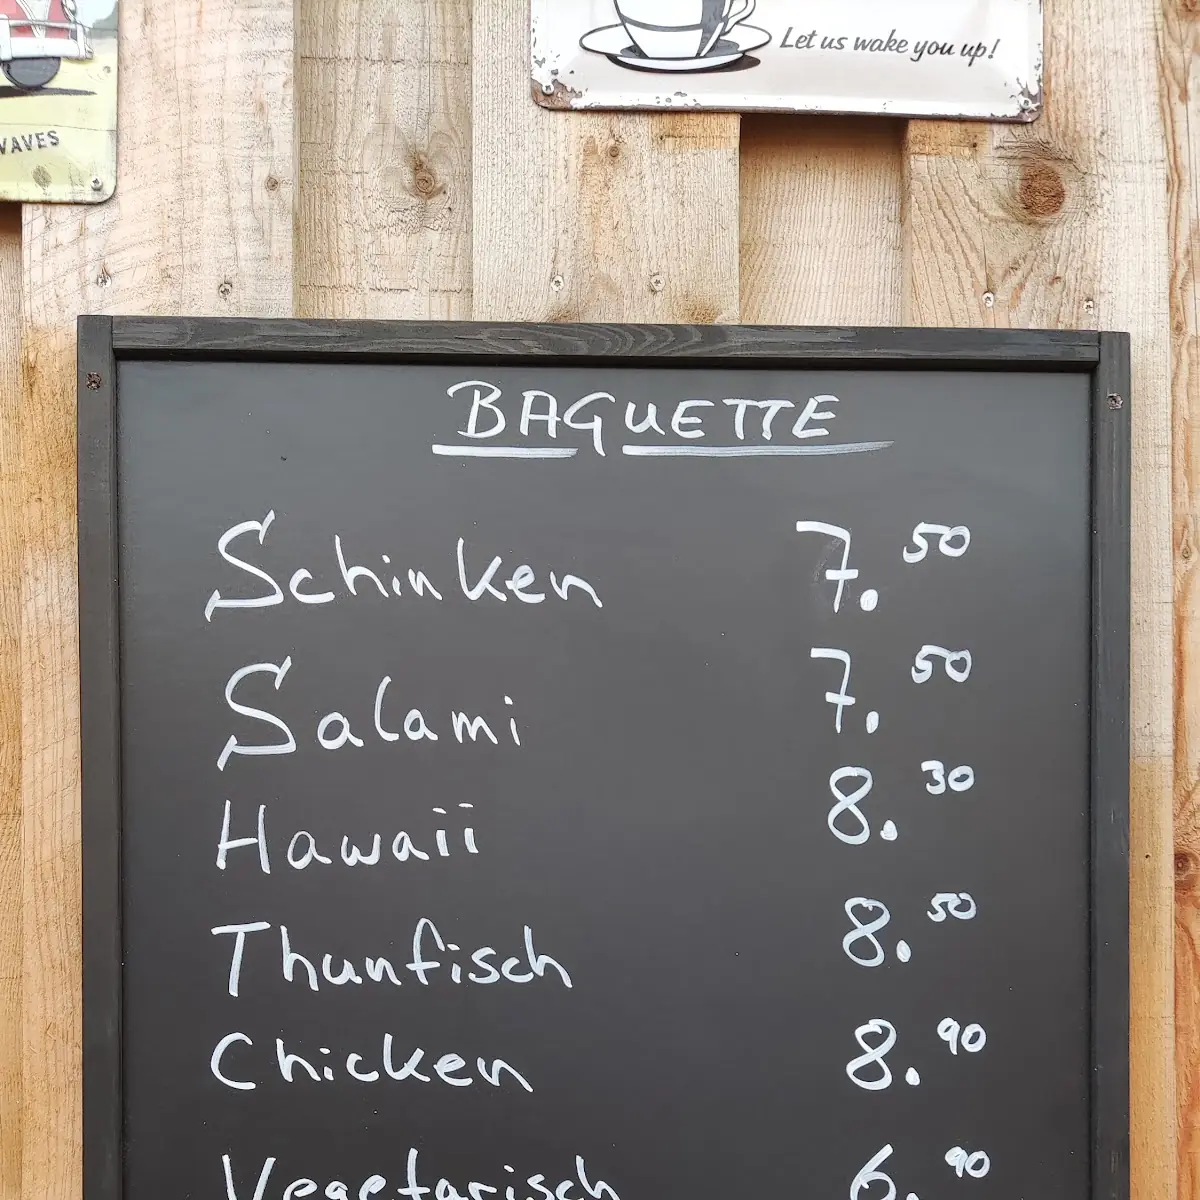 Let us wake you up!
BAGUETTE
Schinken 7.50
Salami 7.50
Hawaii 8.30
Thunfisch 8.50
Chicken 8.90
Vegetarisch 6.90